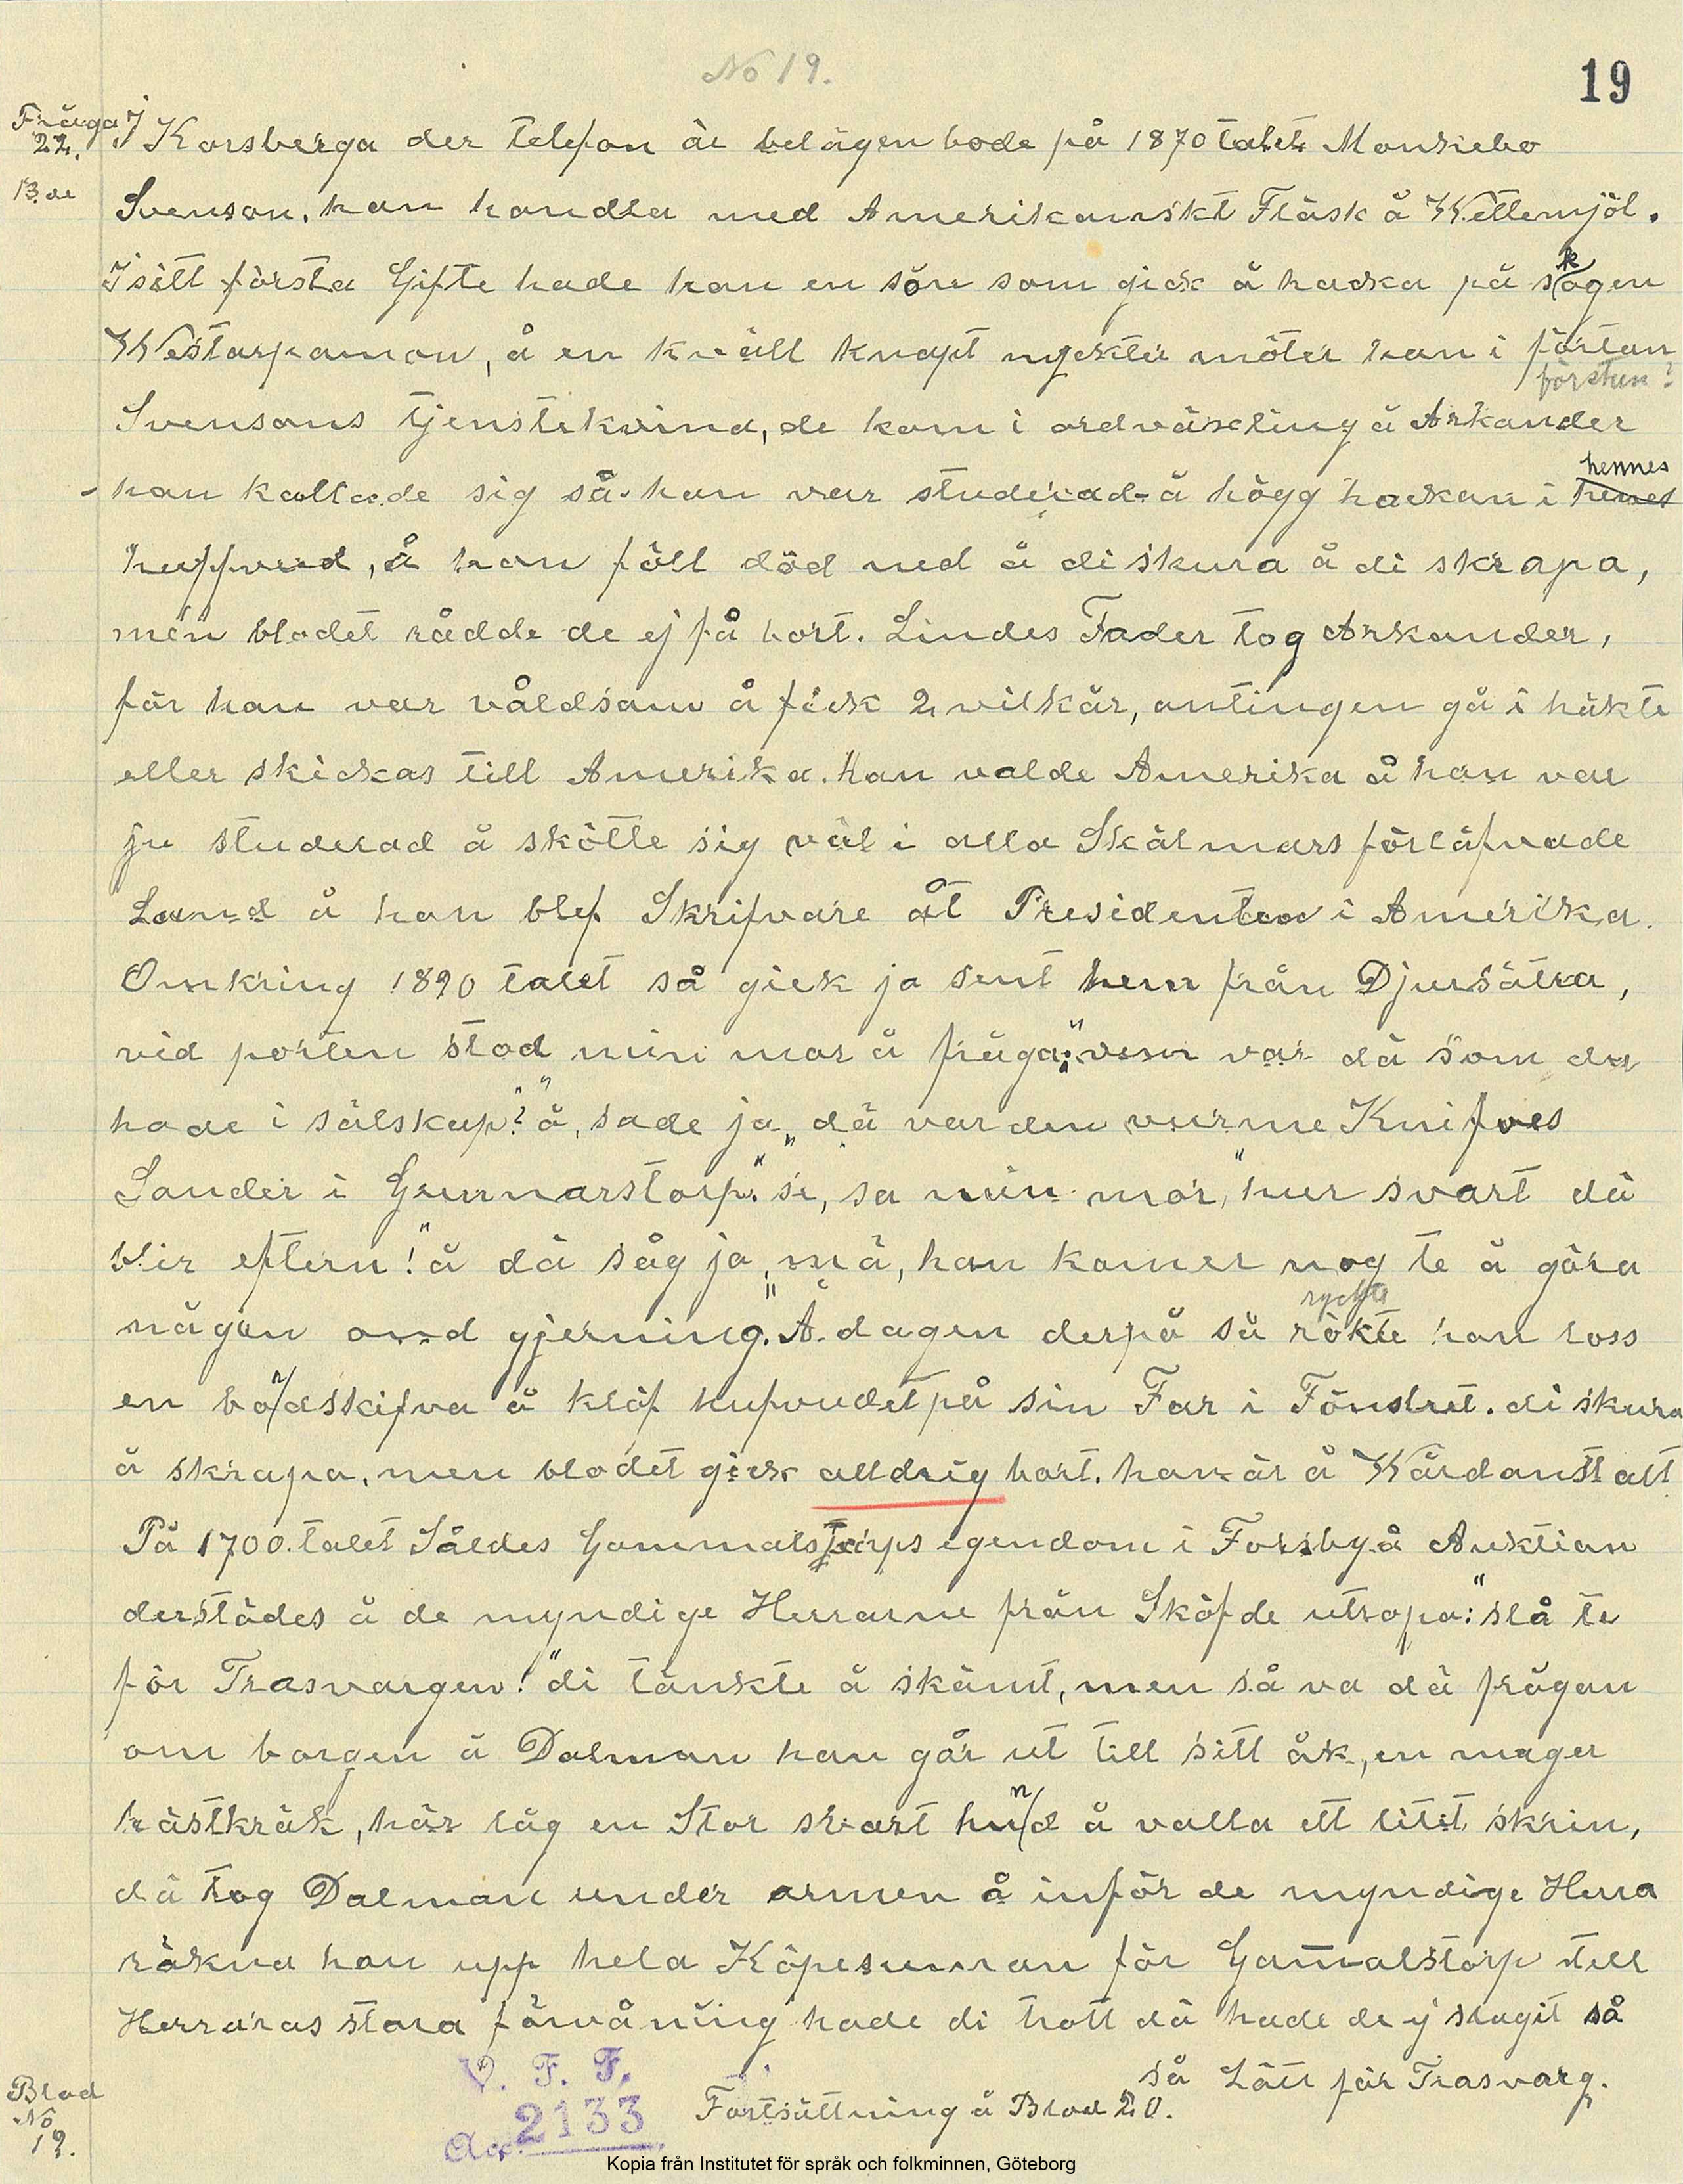 No 19.
19
Fråga
22.
13.de
I Korsberga der telefon är belägen bode på 1870 talet Monsiebo
Svenson. han handla med Amerikanskt Fläsk å Wettemjöl.
I sitt första Gifte hade han en sön som gick å hacka på skogen
Westarpamon, å en kväll knapt nyckter möter han i förtan
förstun?
Svensons tjenstekvina, de kom i ordväxling å Arkander
han kallade sig så. han var studerad å högg hackan i henes
hennes
huffvud, å hon föll död ned å di skura å di skrapa,
men blodet rådde de ej få bort. Lindes Fader tog Arkander,
för han var våldsam å fick 2 vilkår, antingen gå i häkte
eller skickas till Amerika. Han valde Amerika å han var
ju studerad å skötte sig väl i alla Skälmars förläfvade
Land å han blef Skrifvare åt Presidenten i Amerika.
Omkring 1890 talet så gick ja sent hem från Djursätra,
vid porten stod min mor å fråga: "vem var dä som du
hade i sälskap?" "å, sade ja, dä var den vurme Knifves
Sander i Gunnarstorp." "si, sa min mor, "hur svart dä
blir eftern!" å dä såg ja mä, han komer nog te å göra
någon ond gjerning." Å dagen derpå så rökte han loss
ryckte
en bordskifva å klöf hufvudet på sin Far i Fönstret. di skura
å skrapa, men blodet gick alldrig bort. han är å Wårdanstalt
På 1700. talet Såldes Gammalstorps egendom i Forsby å Auktion
derstädes å de myndige Herrarne från Sköfde utropa: "slå te
för Trasvargen!" di tänkte å skämt, men så va dä frågan
om borgen å Dalman han går ut till sitt åk, en mager
hästkräk, här låg en Stor svart hund å valla ett litet skrin,
dä tog Dalman under armen å inför de myndige Herra
räkna han upp hela Köpesumman för Gamalstorp till
Herraras stora förvåning hade di trott dä hade de ej slagit så
så Lätt för Trasvarg.
Fortsättning å Blad 20.
Blad
No
19.
V. F. F.
Acc. 2133
Kopia från Institutet för språk och folkminnen, Göteborg